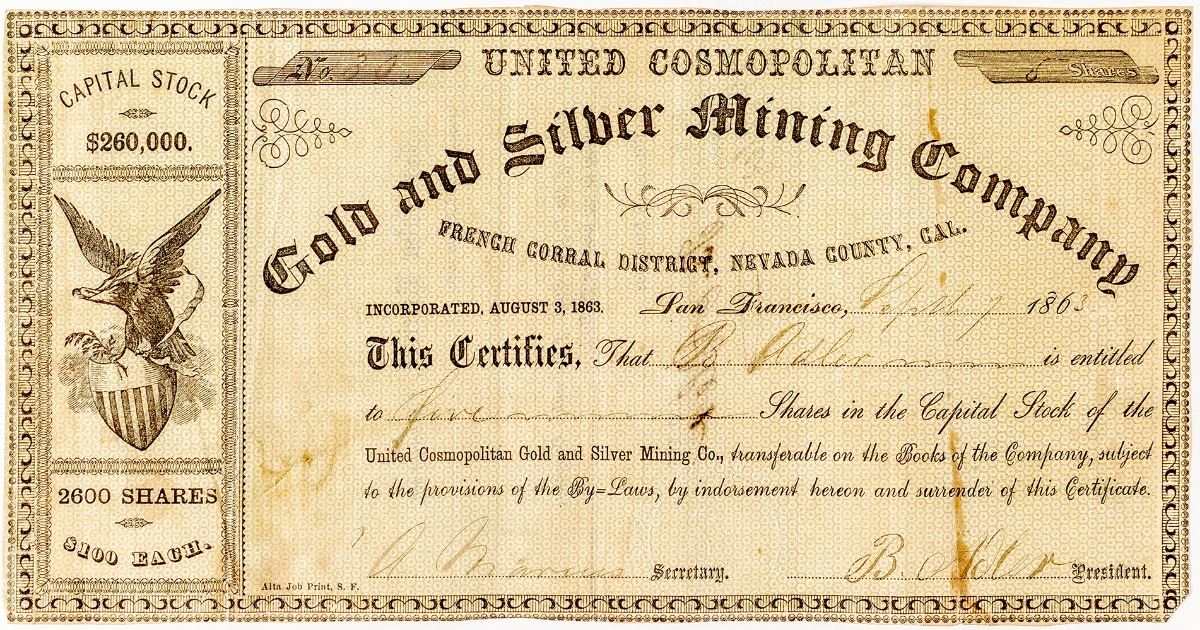 CAPITAL STOCK
$260,000.
2600 SHARES
$100 EACH.
No. 
5 Shares
UNITED COSMOPOLITAN
Gold and Silver Mining Company
FRENCH CORRAL DISTRICT, NEVADA COUNTY, CAL.
INCORPORATED, AUGUST 3, 1863. San Francisco, Septbr 7 1863
This Certifies, That B. Adler is entitled
to five Shares in the Capital Stock of the
United Cosmopolitan Gold and Silver Mining Co., transferable on the Books of the Company, subject
to the provisions of the By=Laws, by indorsement hereon and surrender of this Certificate.
A Marcus Secretary. B. Adler President.
Alta Job Print, S. F.